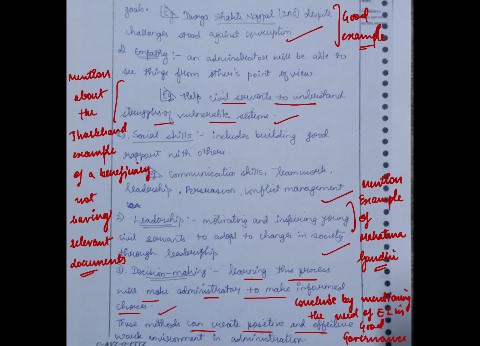 goals. Eg Durga Shakti Nagpal (IAS) despite
challenges stood against corruption
Good
example
2) Empathy :- an administrator will be able to
see things from other's point of view
Eg Help civil servants to understand
struggles of vulnerable section.
Mention
about
the
Jharkhand
example
of a beneficiary
not
having
relevant
documents
Social skills :- includes building good
rapport with others.
Communication skills, teamwork,
leadership, Persuasion, conflict management
Mention
Example
of
Mahatma
Gandhi
Leadership :- motivating and inspiring young
civil servants to adapt to changes in society
through leadership
Decision-making :- learning this process
will make administrator to make informed
choices
conclude by mentioning
the need of EI in
Good
Governance
These methods can create positive and effective
work environment in administration